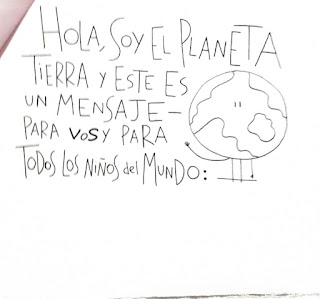 HOLA, SOY EL PLANETA
TIERRA Y ESTE ES
UN MENSAJE–
PARA VOS Y PARA
TODOS LOS NIÑOS del MUNDO: